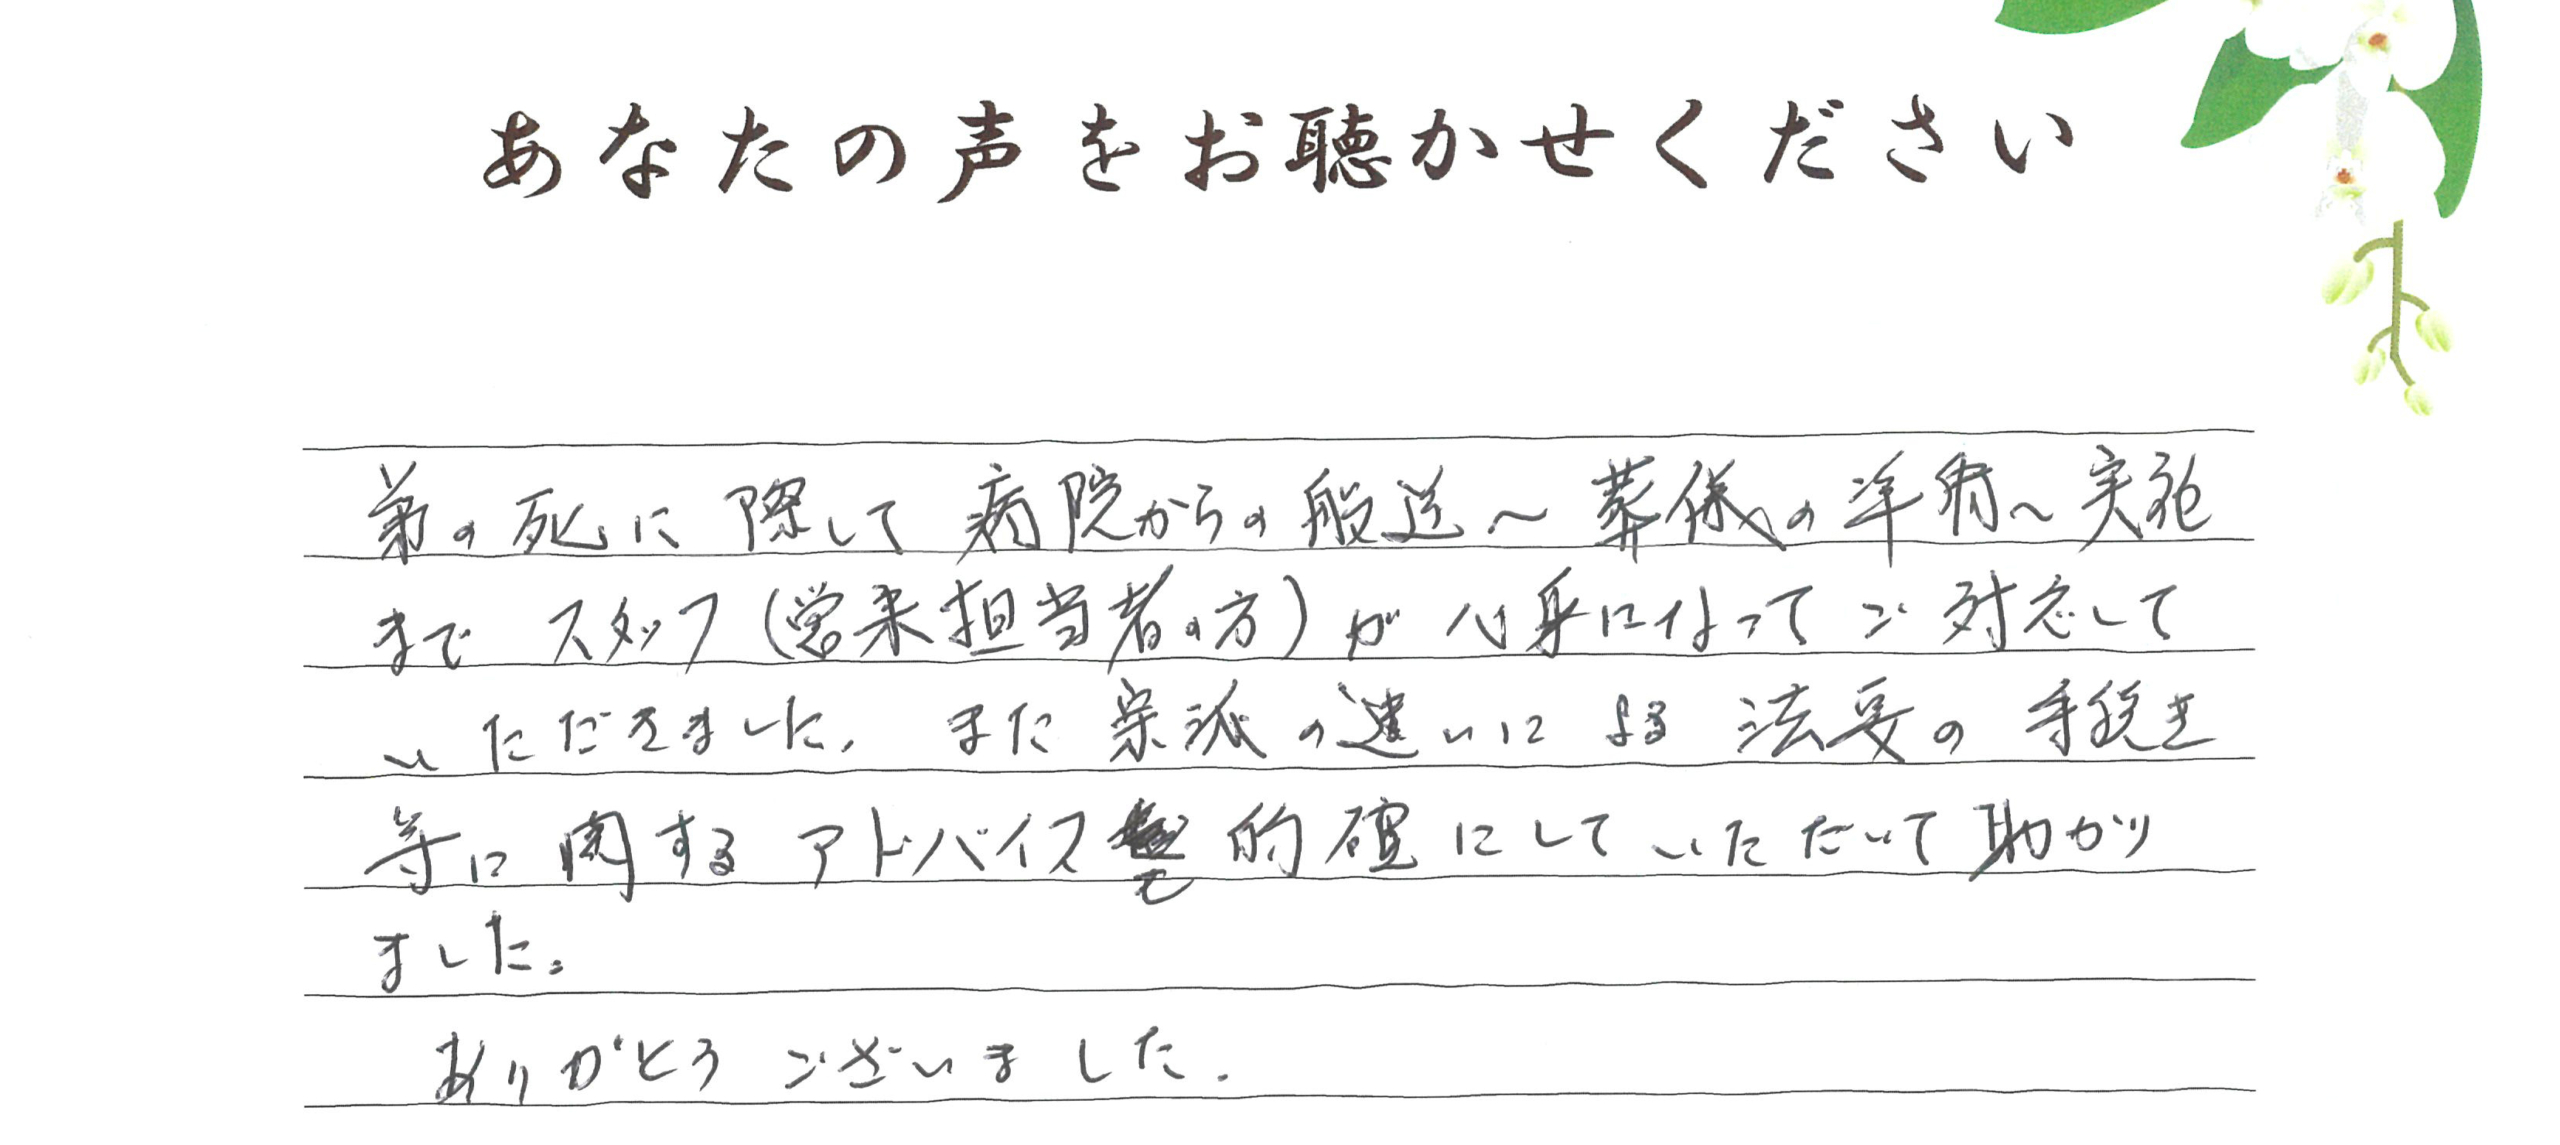 あなたの声をお聴かせください
弟の死に際して病院からの般送～葬儀の準備～実施
まで スタッフ(営業担当者の方)が心身になってご対応して
いただきました。また宗派の違いによる法要の手続き
等に関するアドバイスも的確にしていただいて助かり
ました。
ありがとうございました。